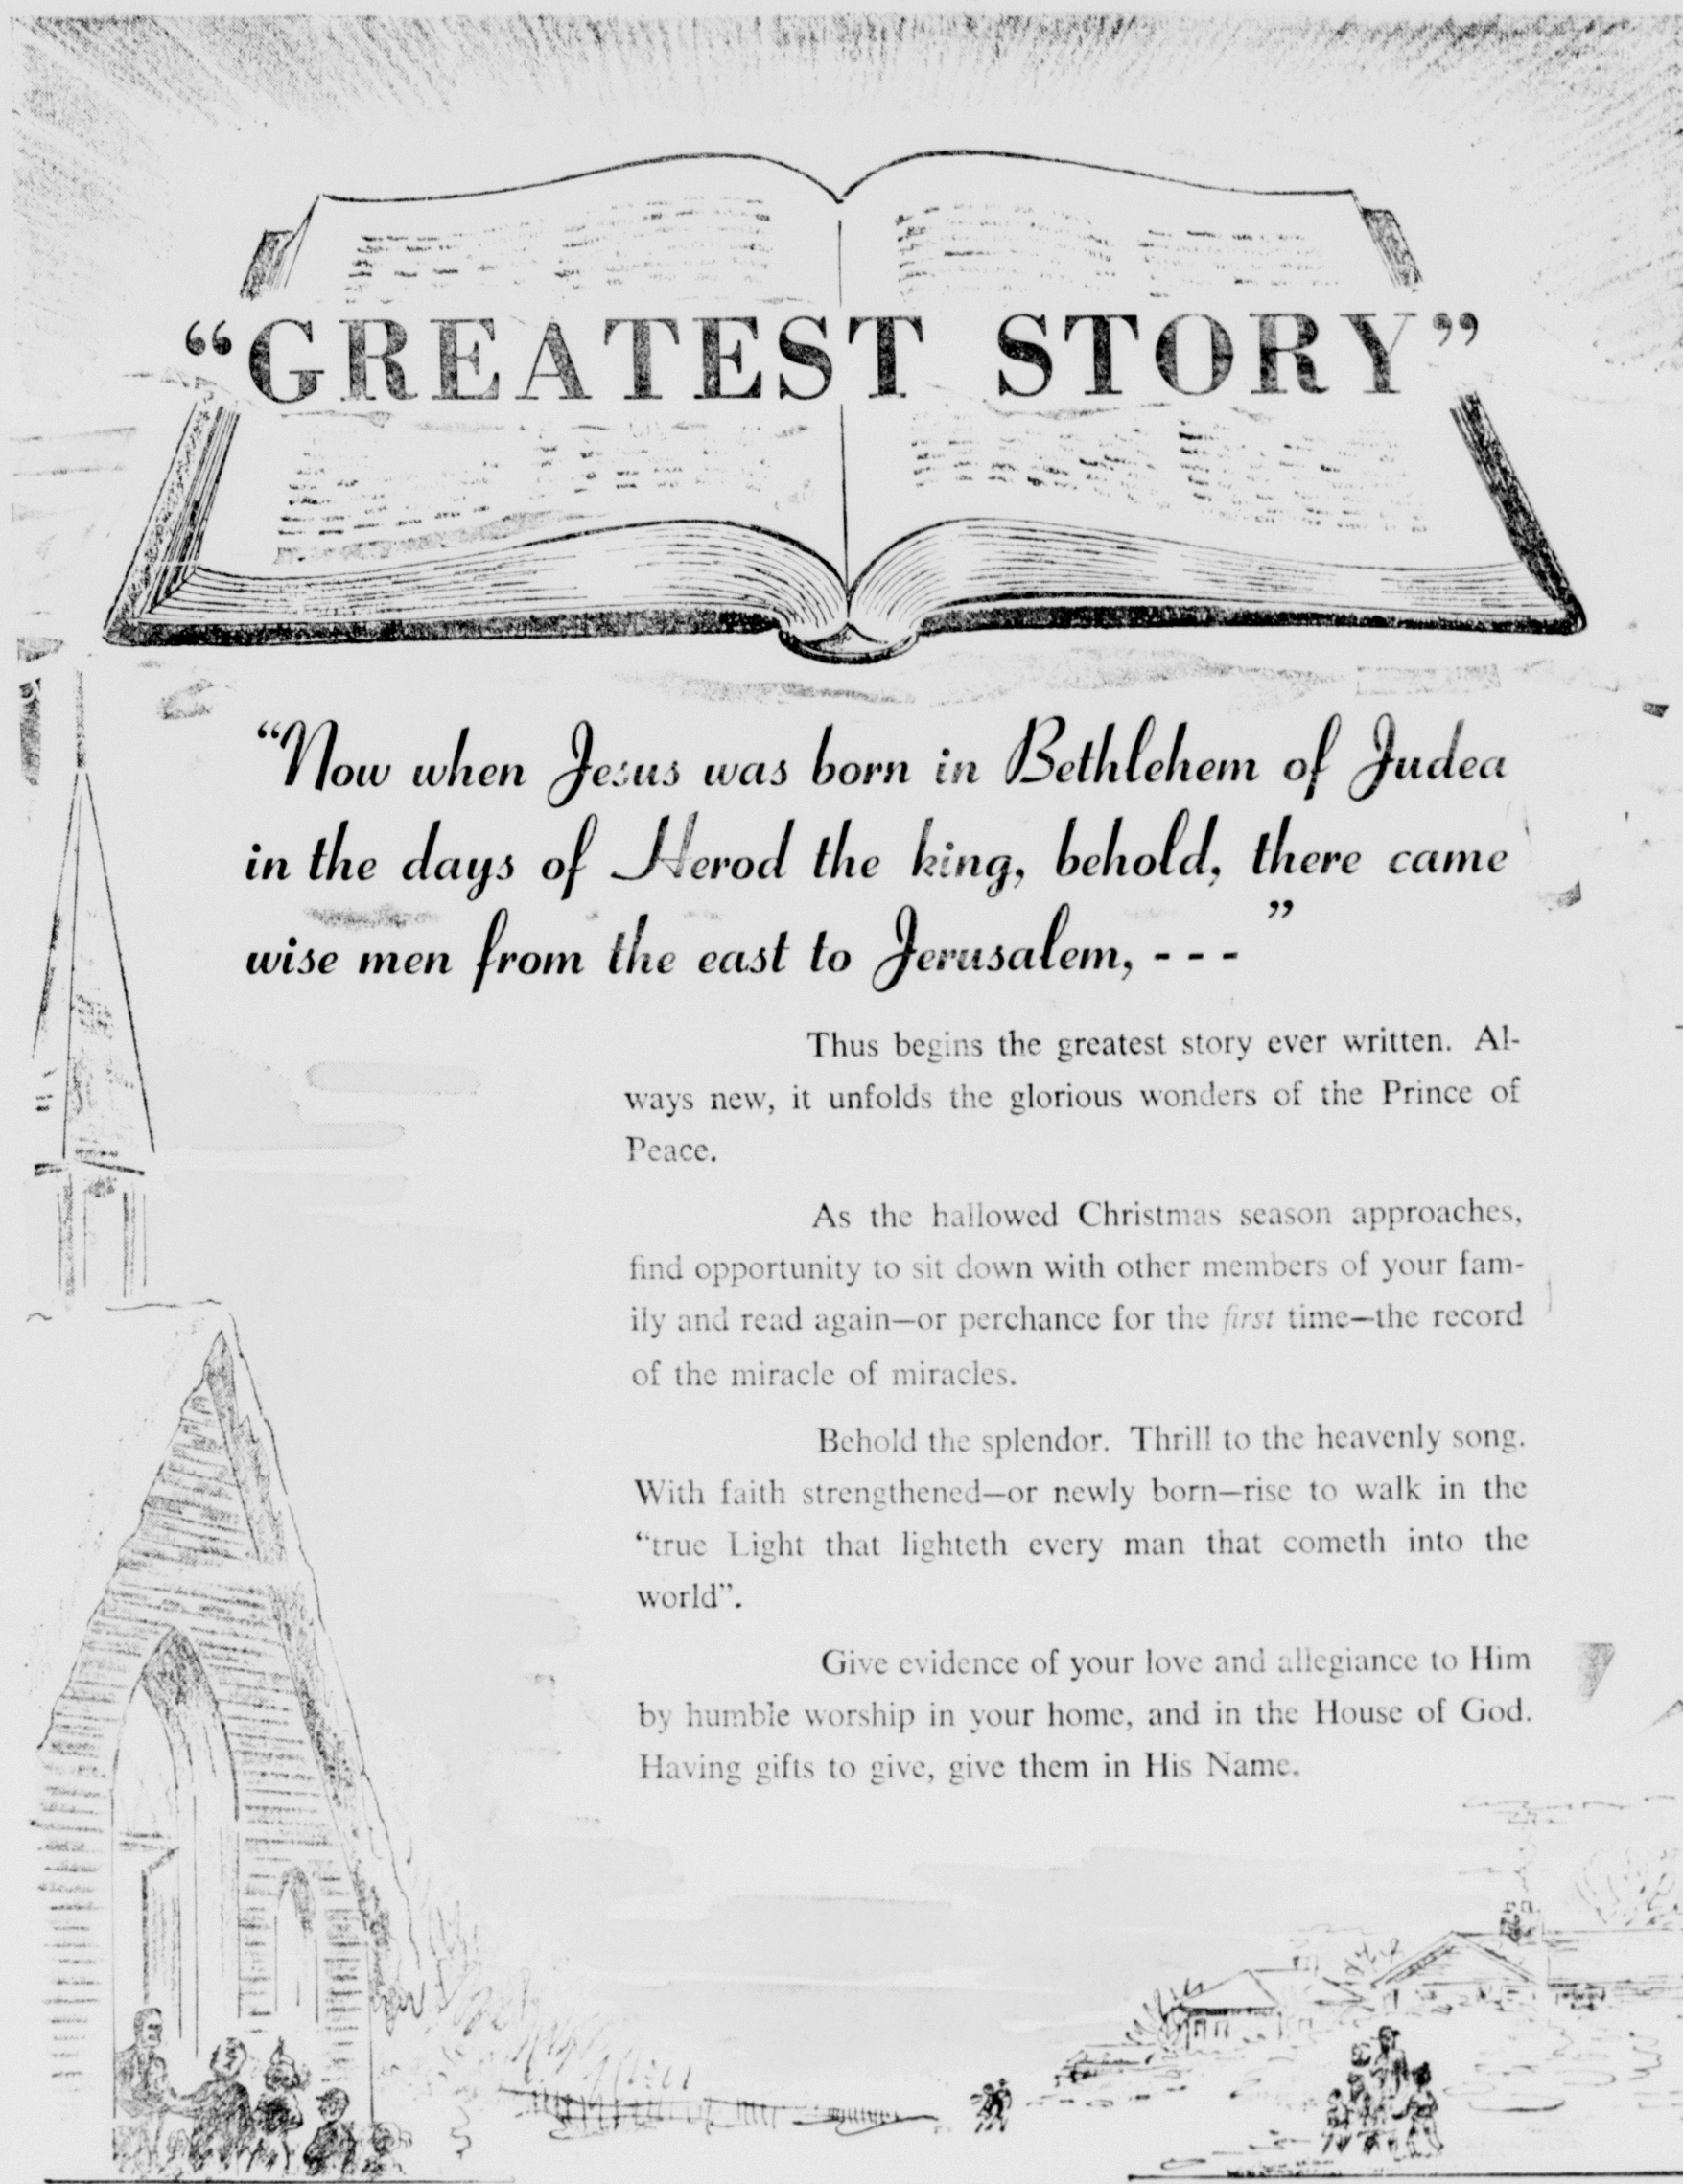 “GREATEST STORY”
“Now when Jesus was born in Bethlehem of Judea
in the days of Herod the king, behold, there came
wise men from the east to Jerusalem, - - - ”
Thus begins the greatest story ever written. Al-
ways new, it unfolds the glorious wonders of the Prince of
Peace.
As the hallowed Christmas season approaches,
find opportunity to sit down with other members of your fam-
ily and read again—or perchance for the first time—the record
of the miracle of miracles.
Behold the splendor. Thrill to the heavenly song.
With faith strengthened—or newly born—rise to walk in the
“true Light that lighteth every man that cometh into the
world”.
Give evidence of your love and allegiance to Him
by humble worship in your home, and in the House of God.
Having gifts to give, give them in His Name.